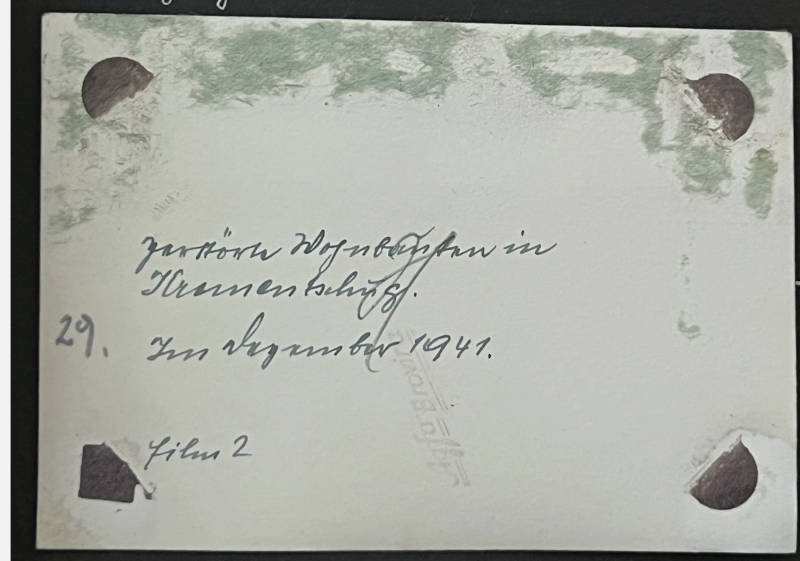 zerstörte Wohnbauten in
Krementschug.
29.
Im Dezember 1941.
Film 2
Agfa Brovira